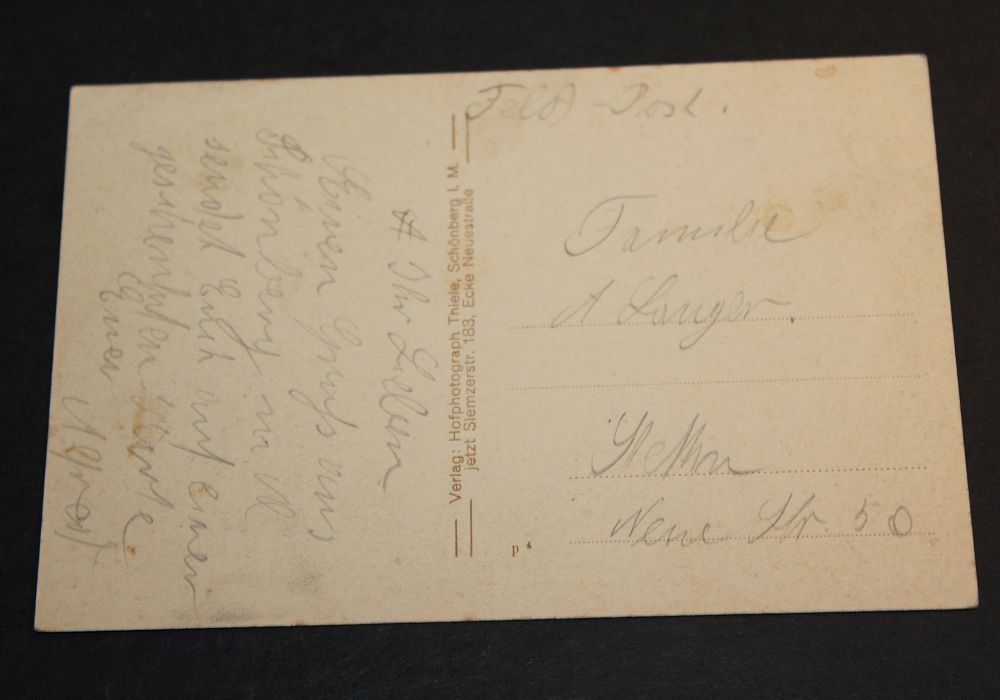 Feld-Post.
Familie
A Langer.
Stettin
Neue Str. 50
Verlag: Hofphotograph Thiele, Schönberg i. M.
jetzt Siemzerstr. 183, Ecke Neuestraße
p
Ihr Lieben
Einen Gruß aus
Schönberg in M
sendet Euch mit einer
Karte
Euer